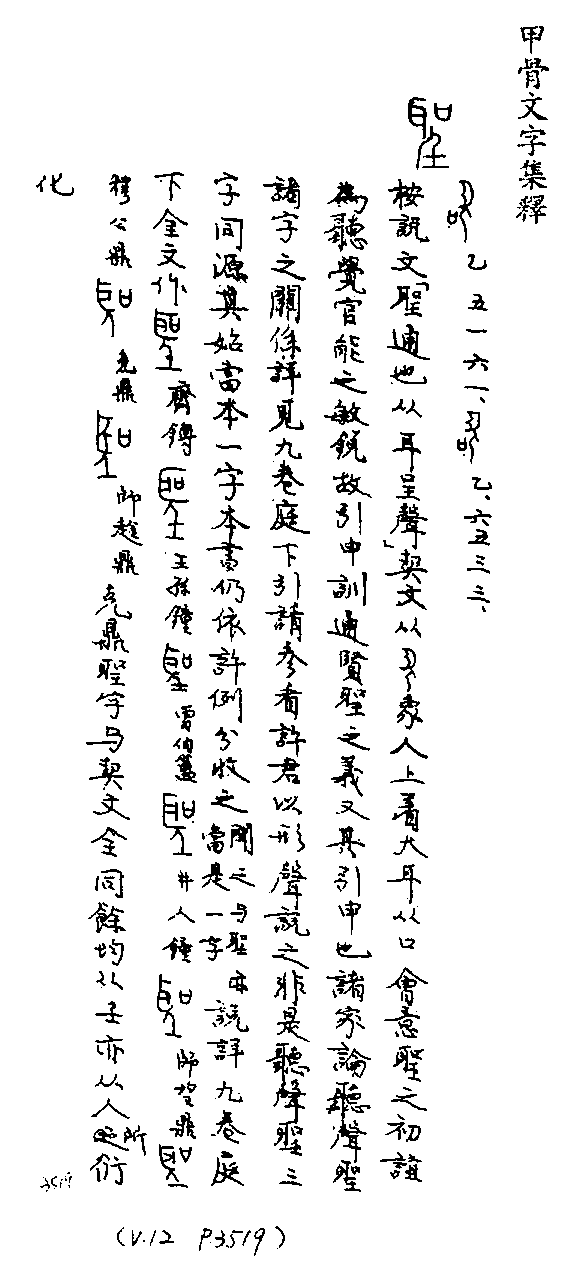 甲骨文字集釋
聖
乙五一六一、乙、六五三三、
按說文「聖通也从耳呈聲」契文从象人上着大耳从口會意聖之初誼
為聽覺官能之敏銳故引申訓通賢聖之義又其引申也諸家論聽聲聖
諸字之關係詳見九卷庭下引請參看許君以形聲說之非是聽聲聖三
字同源其始當本一字本書仍依許例分收之聞之与聖亦當是一字說詳九卷庭
下金文作齊鎛王孫鐘曾伯簠井人鐘師望鼎
穆公鼎克鼎師趛鼎克鼎聖字与契文全同餘均从壬亦从人所衍
化
3519
(V.12 P.3519)